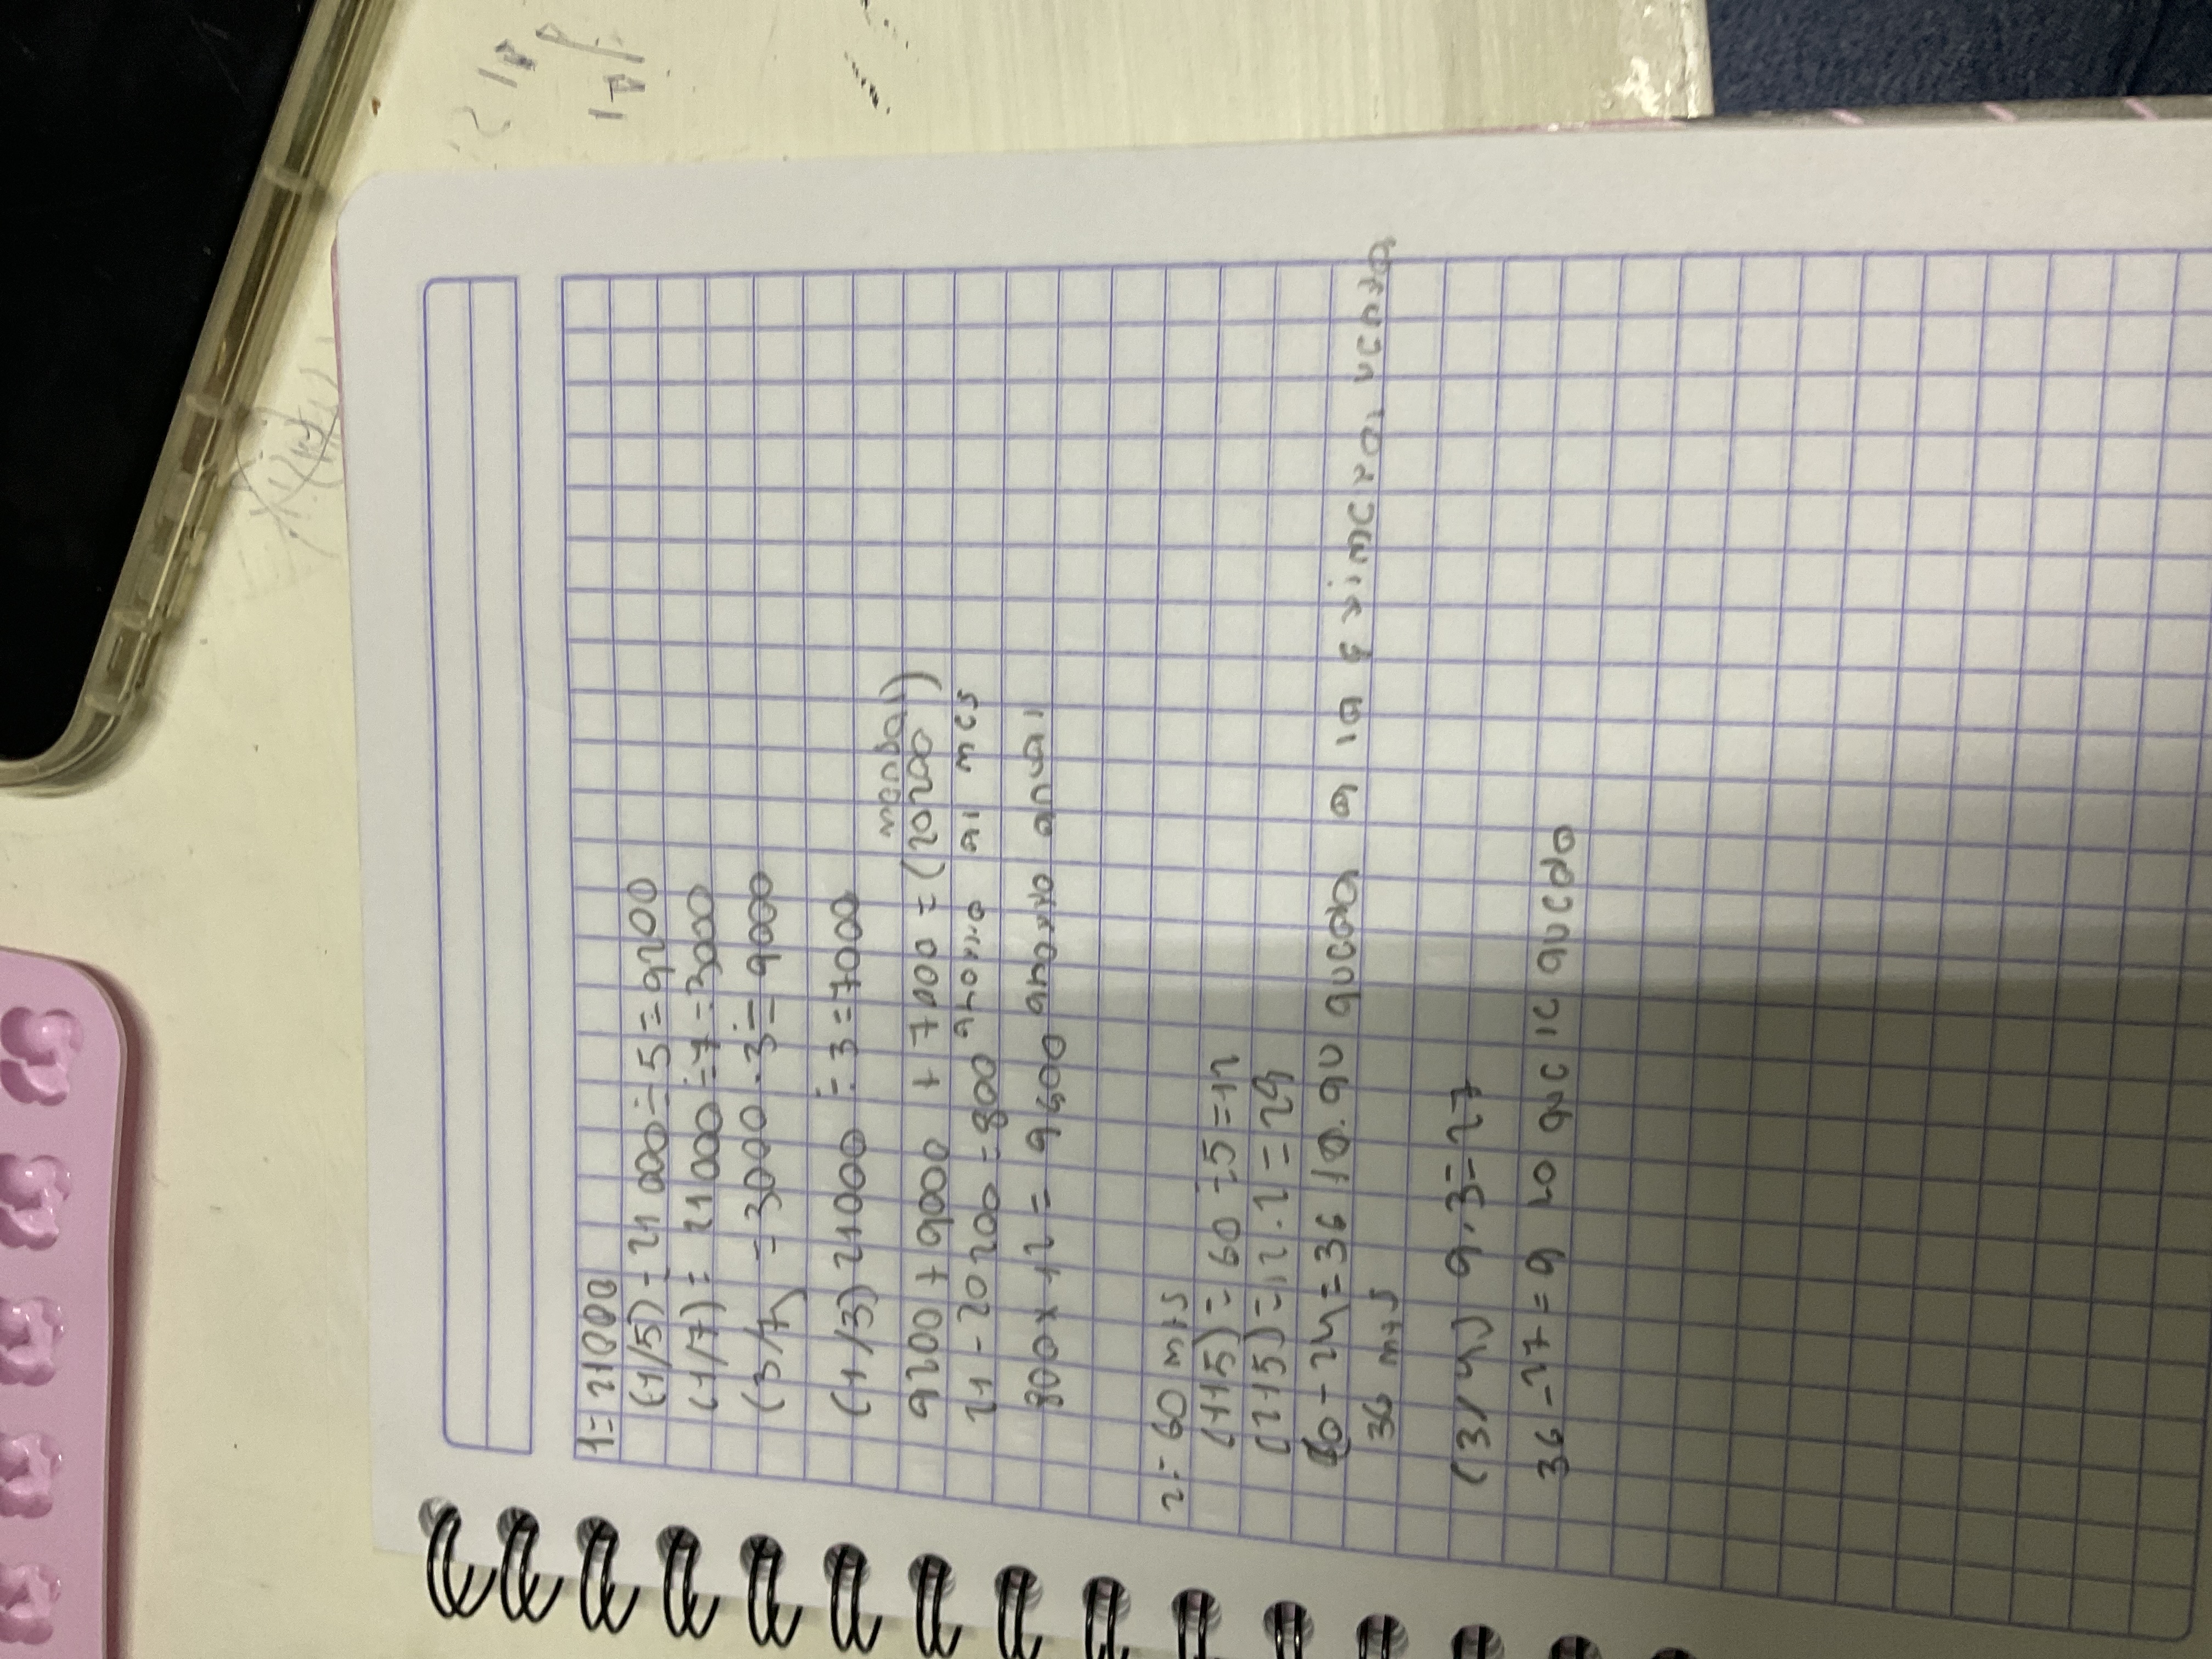 1= 21000
(1/5) = 21000÷5=4200
(1/7) = 21000÷7=3000
(3/7) = 3000.3=9000
(1/3) 21000 ÷ 3=7000
mensual
4200 + 9000 + 7000 = (20200)
21 - 20200 = 800 ahorro al mes
800 x 12 = 9600 ahorro anual
2= 60 mts
(1/5) = 60÷5=12
(2/5)=12.2=24
60-24=36 queda a la
36 mts
(3/4) 9.3=27
36-27=9 lo que le quedo